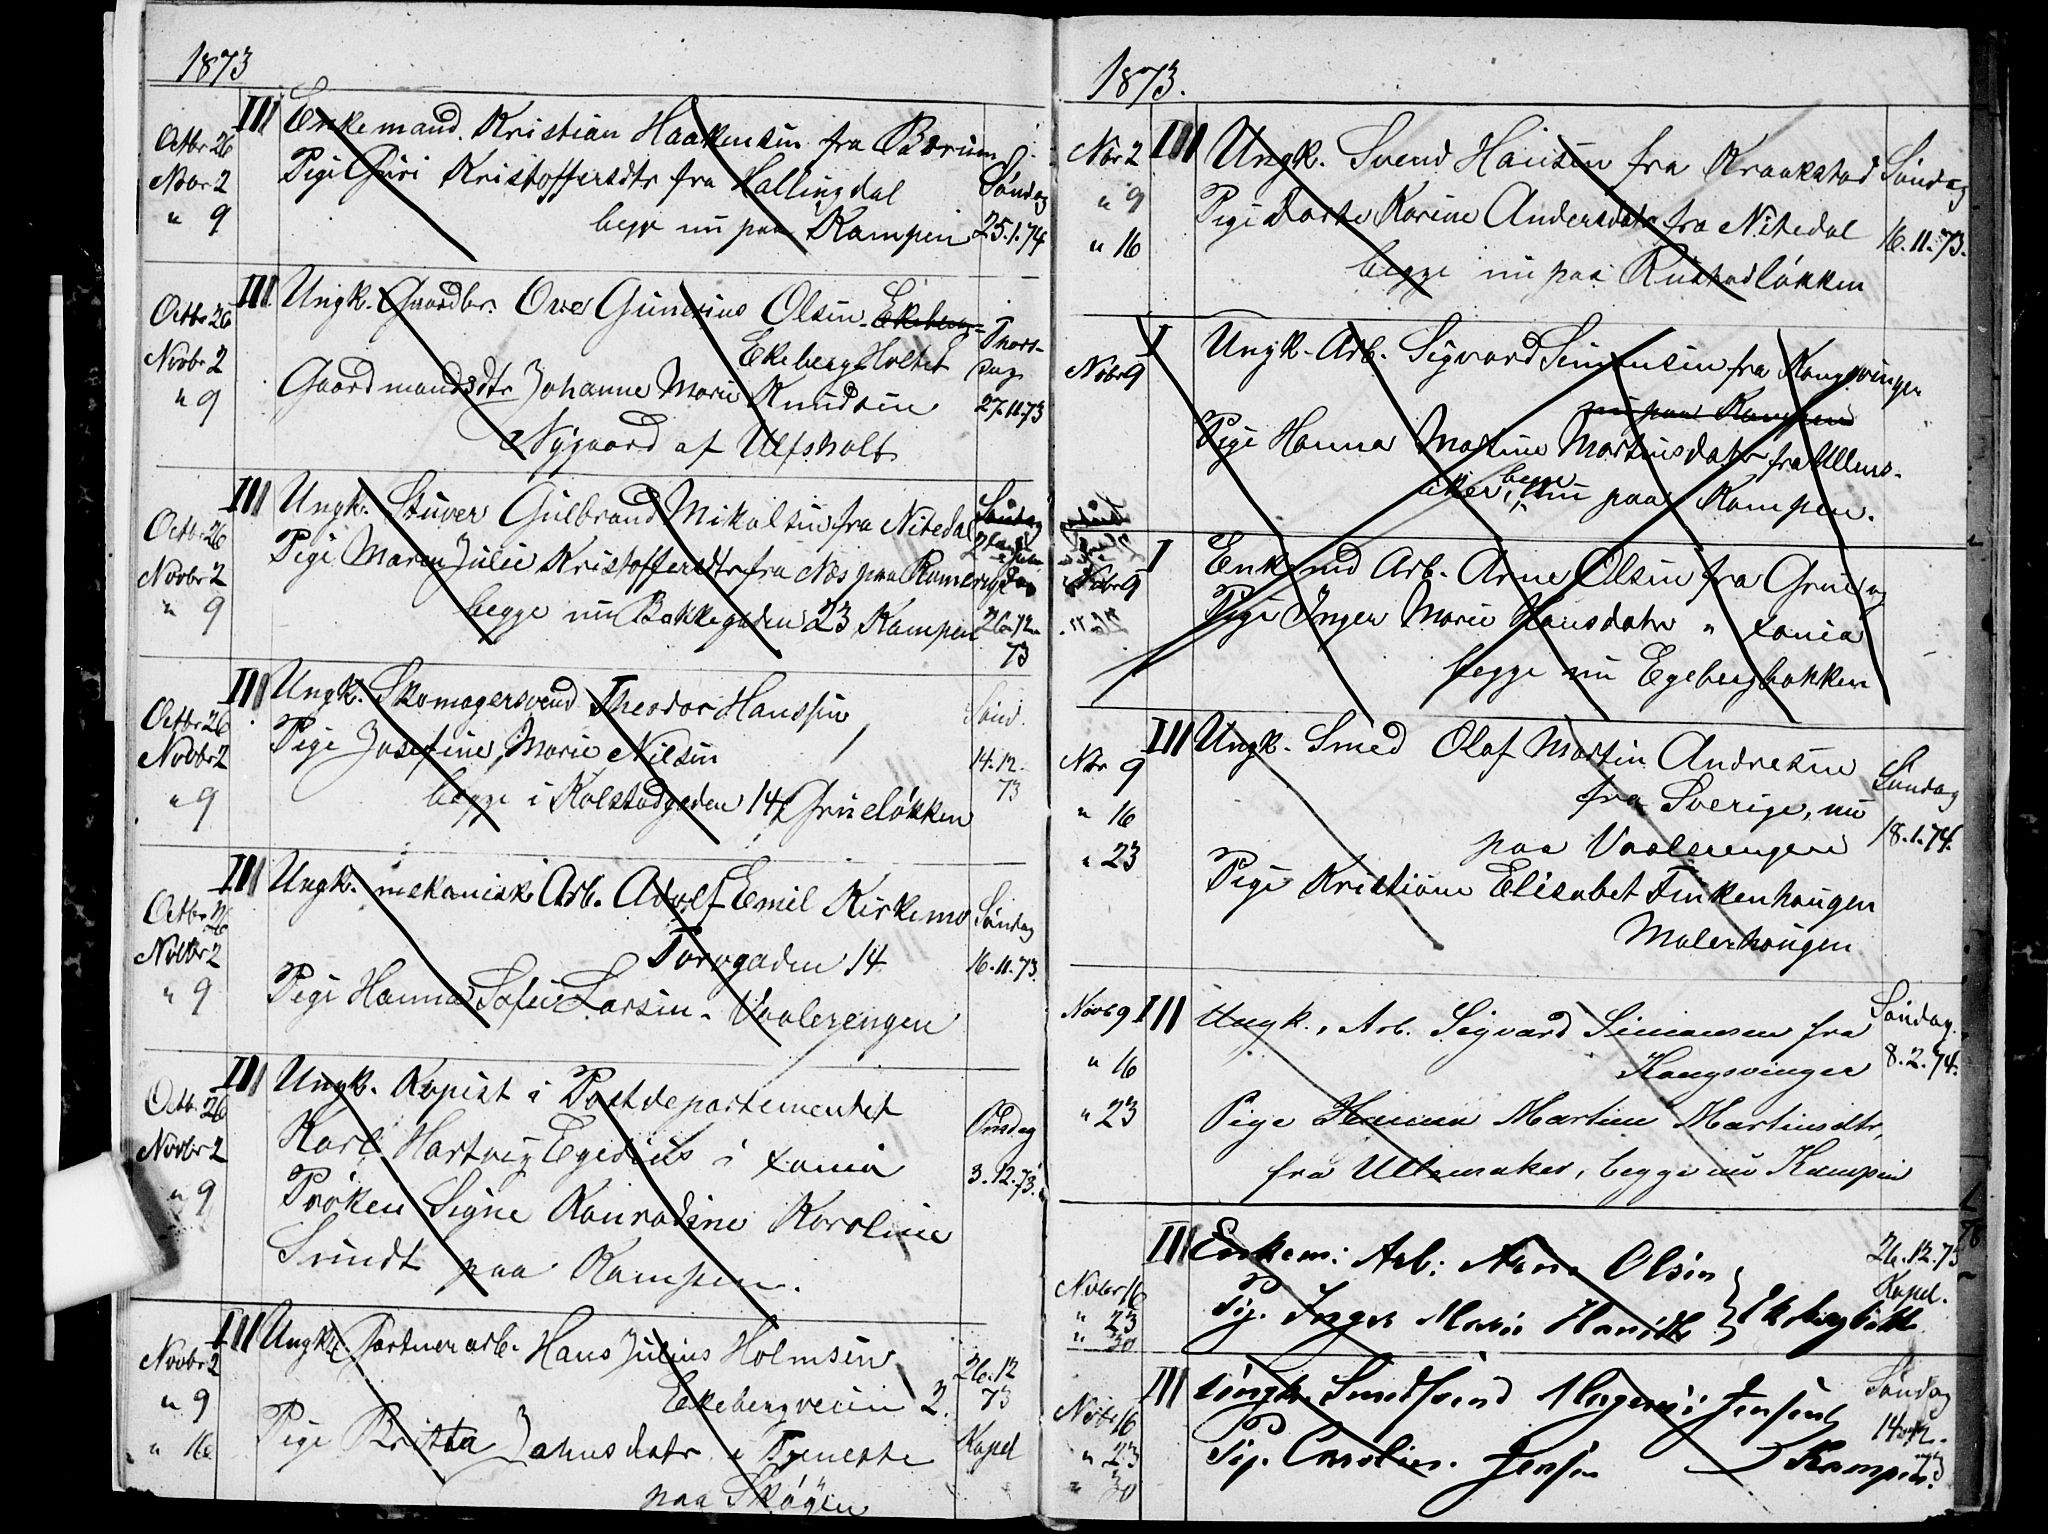 1873
Octbr 26 III Enkemand. Kristian Haakensen fra Bærum
Novbr 2 Pige Guri Kristoffersdtr fra Hallingdal Søndag
" 9 begge nu paa Kampen 25.1.74
Octbr 26 III Ungk. Gaardbr. Ove Gunerius Olsen Ekeberg
Novbr 2 Ekeberg Holtet Thors-
dag
" 9 Gaardmandsdtr Johanne Marie Knudsen 27.11.73
Nygaard af Ulfsholt
Octbr 26 III Ungk. Stuver Gulbrand Mikalsen fra Nitedal Søndag
Novbr 2 Pige Maren Julie Kristoffersdtr fra Nes paa Romerige
" 9 begge nu Bakkegaden 23 Kampen 26.12.
73
Octbr 26 III Ungk. Skomagersvend Theodor Hanssen, Sønd.
Novbr 2 Pige Josefine Marie Nilsen 14.12.
73
" 9 begge i Kolstadgaden 14, Grüneløkken
Octbr 26 III Ungk. mekanisk Arb. Adolf Emil Kirkemo Søndag
Novbr 2 Torvgaden 14 16.11.73.
" 9 Pige Hanna Sofie Larsen. Vaalerengen
Octb. 26 III Ungk. Kopist i Postdepartementet
Novbr 2 Karl Hartvig Egidius i Xania Onsdag
" 9 Frøken Signe Konradine Karoline 3.12.73.
Sundt paa Kampen.
Novbr 2 III Ungk. Gartnerarb. Hans Julius Holmsen 26.12
" 9 Ekebergveien 2. 73
" 16 Pige Britta Jahnsdatr i Tjeneste Kapel
paa Skøyen
1873.
Nvbr 2 III Ungk. Svend Hansen fra Kraakstad Søndag
" 9 Pige Dorte Karine Andersdatr fra Nitedal
" 16 begge nu paa Rustadløkken 16.11.73.
Nvbr 9 I Ungk. Arb. Sigvard Simensen fra Kongsvinger
nu paa Kampen
Pige Hanna Martine Martinsdatr fra Ullens-
aker, begge nu paa Kampen.
Nvbr 9 I Enkemd Arb. Arne Olsen fra Grue og
Pige Inger Marie Hansdatr " Xania
begge nu Egebergbakken
Nvbr 9 III Ungk. Smed Olaf Martin Andresen
" 16 fra Sverige, nu Søndag
" 23 paa Vaalerengen 18.1.74.
Pige Kristiane Elisabet Finkenhaugen
Malerhaugen
Novb 9 III Ungk., Arb. Sigvard Simensen fra Søndag.
" 16 Kongsvinger 8.2.74.
" 23 Pige Hanna Martine Martinsdtr,
fra Ullensaker, begge nu Kampen
III Enkem: Arb: Arne Olsen 26.12.73
Novbr 16 Kapel.
" 23 Pig. Inger Marie Hansdtr
" 30
III Ungk. Smedsvend Jensen Søndag
Nvbr 16 14.12.
" 23 Pig. Caroline Jensen Kampen. 73
" 30